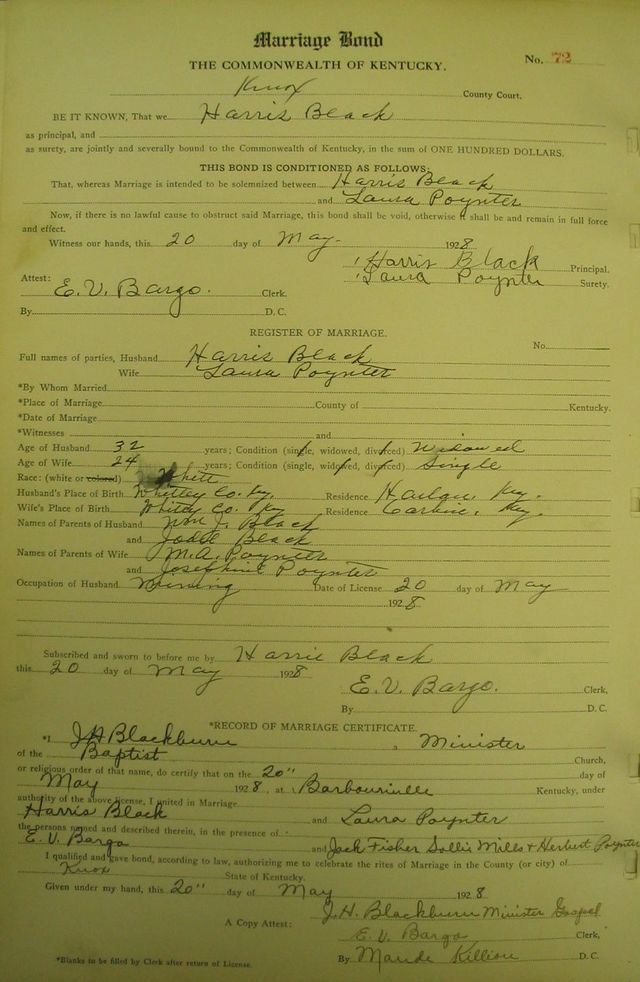 Marriage Bond
THE COMMONWEALTH OF KENTUCKY.
No. 72
Knox County Court.
BE IT KNOWN, That we Harris Black
as principal, and
as surety, are jointly and severally bound to the Commonwealth of Kentucky, in the sum of ONE HUNDRED DOLLARS.
THIS BOND IS CONDITIONED AS FOLLOWS:
That, whereas Marriage is intended to be solemnized between Harris Black
and Laura Poynter
Now, if there is no lawful cause to obstruct said Marriage, this bond shall be void, otherwise it shall be and remain in full force
and effect.
Witness our hands, this 20 day of May. 1928
Harris Black Principal.
Laura Poynter Surety.
Attest:
E. V. Bargo. Clerk.
By D. C.
REGISTER OF MARRIAGE.
No.
Full names of parties, Husband Harris Black
Wife Laura Poynter
*By Whom Married
*Place of Marriage County of Kentucky.
*Date of Marriage
*Witnesses and
Age of Husband 32 years; Condition (single, widowed, divorced) Widowed
Age of Wife 24 years; Condition (single, widowed, divorced) Single
Race: (white or colored) White
Husband's Place of Birth Whitley Co. Ky. Residence Harlan, Ky.
Wife's Place of Birth Whitley Co. Ky Residence Corbin, Ky.
Names of Parents of Husband Wm J. Black
and Black
Names of Parents of Wife M. A. Poynter
and Josephine Poynter
Occupation of Husband Mining Date of License 20 day of May
1928
Subscribed and sworn to before me by Harris Black
this 20 day of May 1928
E. V. Bargo. Clerk,
By D. C.
*RECORD OF MARRIAGE CERTIFICATE.
*I J H Blackburn a Minister
of the Baptist Church,
or religious order of that name, do certify that on the 20" day of
May 1928, at Barbourville Kentucky, under
authority of the above license, I united in Marriage
Harris Black and Laura Poynter
the persons named and described therein, in the presence of
E. V. Bargo and Jack Fisher Sollis Mills & Herbert Poynter
I qualified and gave bond, according to law, authorizing me to celebrate the rites of Marriage in the County (or city) of
Knox State of Kentucky.
Given under my hand, this 20" day of May 1928
J. H. Blackburn Minister Gospel
A Copy Attest: E. V. Bargo Clerk,
By Maude Killion D. C.
*Blanks to be filled by Clerk after return of License.